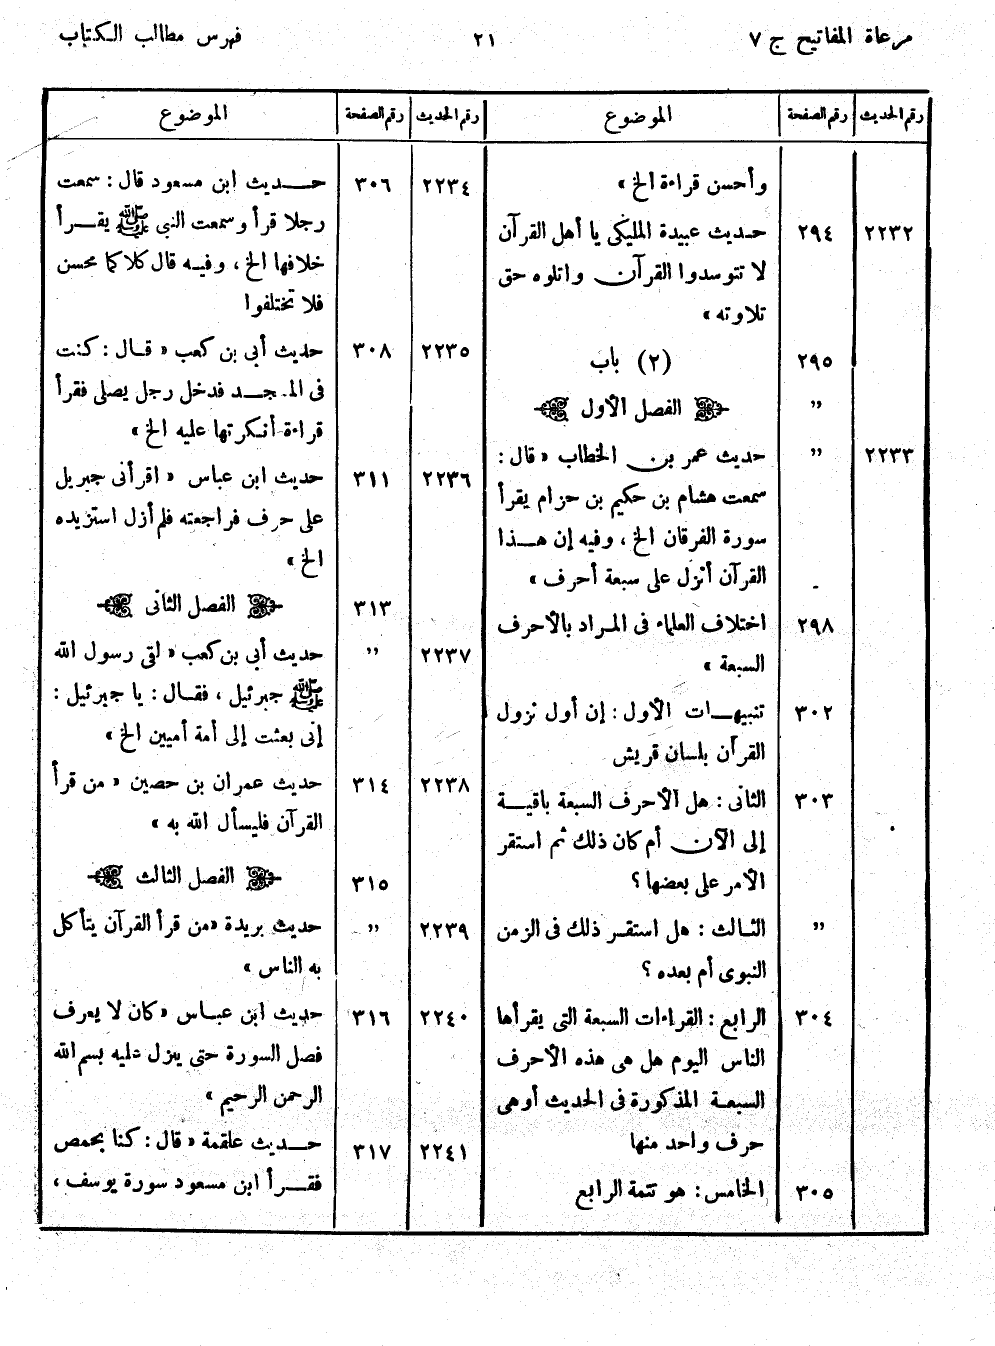 مرعاة المفاتيح ج ٧ ٢١ فهرس مطالب الكتاب
رقم الحديث رقم الصفحة الموضوع
وأحسن قراءة الخ »
٢٢٣٢ ٢٩٤ حديث عبيدة المليكى يا أهل القرآن
لا تتوسدوا القرآن واتلوه حق
تلاوته »
٢٩٥ (٢) باب
” الفصل الأول
٢٢٣٣ ” حديث عمر بن الخطاب « قال :
سمعت هشام بن حكيم بن حزام يقرأ
سورة الفرقان الخ ، وفيه إن هذا
القرآن أنزل على سبعة أحرف »
٢٩٨ اختلاف العلماء فى المراد بالأحرف
السبعة »
٣٠٢ تنبيهات الأول : إن أول نزول
القرآن بلسان قريش
٣٠٣ الثانى : هل الأحرف السبعة باقية
إلى الآن أم كان ذلك ثم استقر
الأمر على بعضها ؟
” الثالث : هل استقر ذلك فى الزمن
النبوى أم بعده ؟
٣٠٤ الرابع : القراءات السبعة التى يقرأها
الناس اليوم هل هى هذه الأحرف
السبعة المذكورة فى الحديث أوهى
حرف واحد منها
٣٠٥ الخامس : هو تتمة الرابع
رقم الحديث رقم الصفحة الموضوع
٢٢٣٤ ٣٠٦ حديث ابن مسعود قال : سمعت
رجلا قرأ وسمعت النبى ﷺ يقرأ
خلافها الخ ، وفيه قال كلاكما محسن
فلا تختلفوا
٢٢٣٥ ٣٠٨ حديث أبى بن كعب « قال : كنت
فى المسجد فدخل رجل يصلى فقرأ
قراءة أنكرتها عليه الخ »
٢٢٣٦ ٣١١ حديث ابن عباس « اقرأنى جبريل
على حرف فراجعته فلم أزل استزيده
الخ »
٣١٣ الفصل الثانى
٢٢٣٧ ” حديث أبى بن كعب « لقى رسول الله
ﷺ جبرئيل ، فقال : يا جبرئيل :
إنى بعثت إلى أمة أميين الخ »
٢٢٣٨ ٣١٤ حديث عمران بن حصين « من قرأ
القرآن فليسأل الله به »
٣١٥ الفصل الثالث
٢٢٣٩ ” حديث بريدة «من قرأ القرآن يتأكل
به الناس »
٢٢٤٠ ٣١٦ حديث ابن عباس « كان لا يعرف
فصل السورة حتى ينزل عليه بسم الله
الرحمن الرحيم »
٢٢٤١ ٣١٧ حديث علقمة « قال : كنا بحمص
فقرأ ابن مسعود سورة يوسف ،